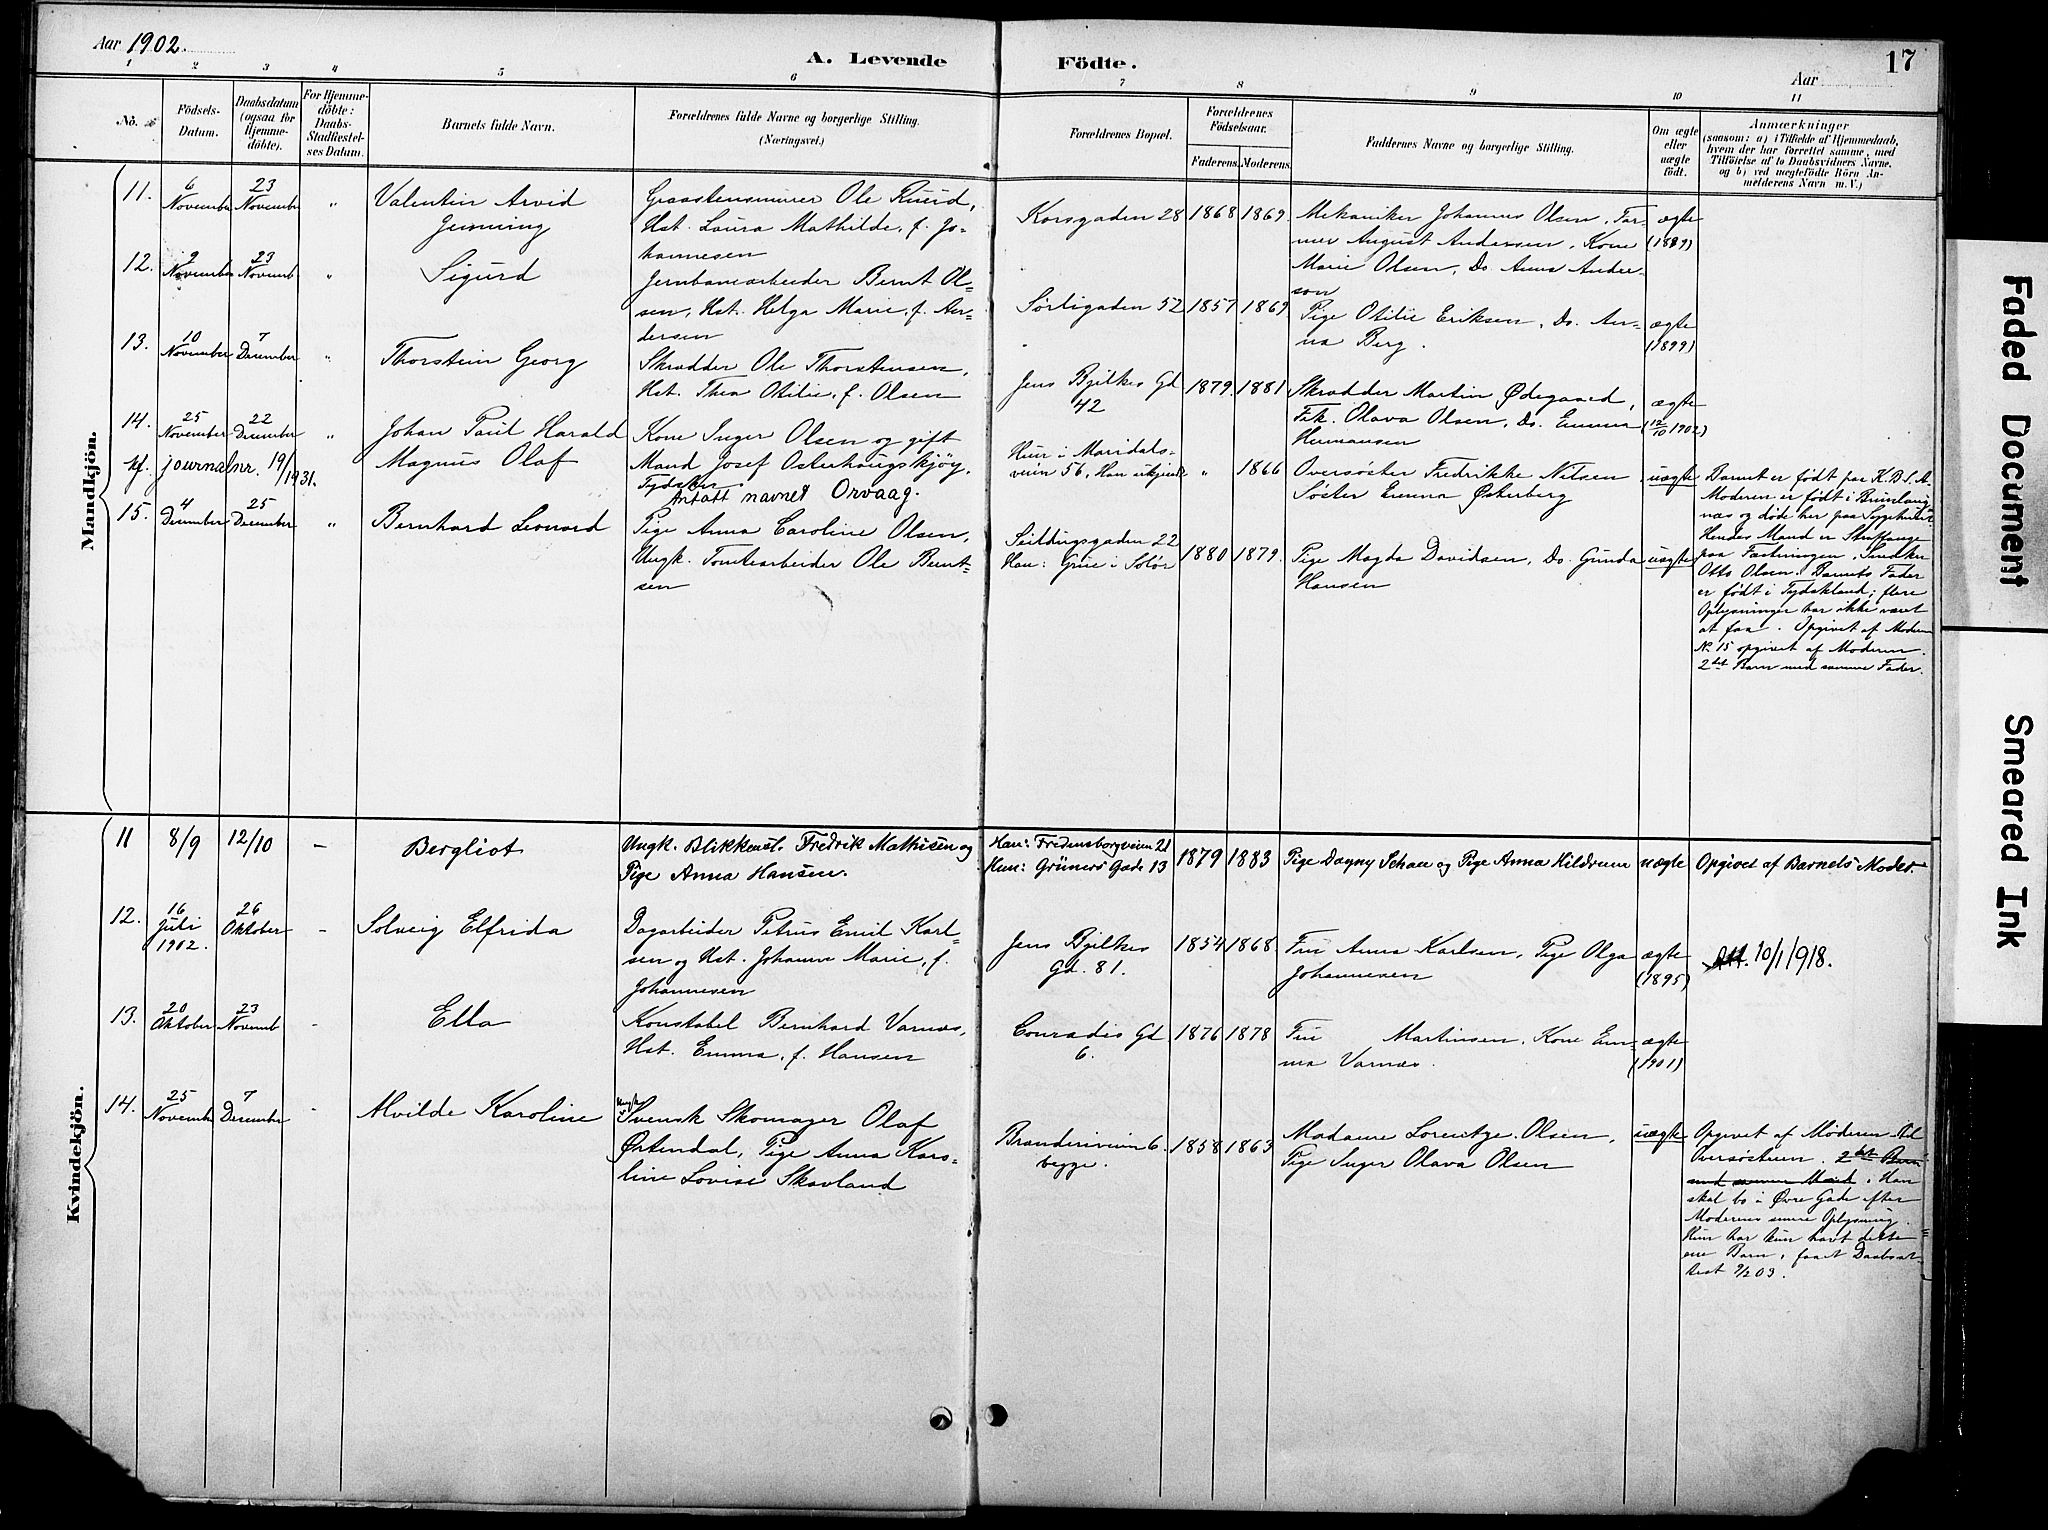 Aar 1902.
A. Levende Födte.
Aar
17
1 2 3 4 5 6 7 8 9 10 11
No.
Födsels-Datum.
Daabsdatum (ogsaa for Hjemmedöbte).
For Hjemmedöbte: Daabs-Stadfæstelses Datum.
Barnets fulde Navn.
Forældrenes fulde Navne og borgerlige Stilling. (Næringsvei.)
Forældrenes Bopæl.
Forældrenes Födselsaar.
Faderens. Moderens.
Faddernes Navne og borgerlige Stilling.
Om ægte eller uægte födt.
Anmærkninger (saasom: a) i Tilfælde af Hjemmedaab, hvem der har forrettet samme, med Tilföielse af to Daabsvidners Navne, og b) ved uægtefödte Börn Anmelderens Navn m. V.)
Mandkjön.
11. 6 November 23 November " Valentin Arvid Henning
Graastensmurer Ole Ruud, Hst. Laura Mathilde, f. Johannesen
Korsgaden 28 1868 1869
Mekaniker Johannes Olsen, Farmer August Andersen, Kone Marie Olsen, Do. Anna Anderson
ægte (1889)
12. 2 November 23 Novemb " Sigurd
Jernbanearbeider Bernt Olsen, Hst. Helga Marie, f. Andersen
Sørligaden 52 1857 1869
Pige Otilie Eriksen, Do. Anna Berg.
ægte (1899)
13. 10 November 7 Desember " Thorstein Georg
Skrædder Ole Thorstensen, Hst. Thea Otilie, f. Olsen
Jens Bjelkes Gd 42 1879. 1881
Skrædder Martin Ødegaard, Frk. Olava Olsen, Do. Emma Hermansen
ægte (12/10 1902)
14. 25 November 22 Desember " Johan Paul Harald Magnus Olaf
kf. journalnr. 19/1931.
Kone Inger Olsen og gift Mand Josef Osterhaugskjøy, Tydsker
Antatt navnet Orvaag.
Hun i Maridalsveien 56, Han ukjendt " 1866
Oversøster Fredrikke Nilsen Søster Emma Østerberg
uægte
Barnet er født paa K.B.S.A. Moderen er født i Brunlangnæs og døde her paa Sygehuset Hendes Mand er Straffange paa Fæstningen, Snedker Otto Olsen. Barnets Fader er født i Tydskland; flere Oplysninger har ikke været at faa. Opgivet af Moderen
15. 4 Desember 25 Desember " Bernhard Leonard
Pige Anna Caroline Olsen, Ungk. Tomtearbeider Ole Berntsen
Seildugsgaden 22 Han: Grue i Solør 1880 1879.
Pige Magda Davidsen, Do. Gunda Hansen
uægte
No. 15 opgivet af Moderen. 2det Barn med samme Fader.
Kvindekjön.
11 8/9 12/10 – Bergliot
Ungk. Blikkensl. Fredrik Mathisen og Pige Anna Hansen.
Han: Fredensborgveien 21 Hun: Grüners Gade 13 1879 1883
Pige Dagny Schau og Pige Anna Hildrum
uægte
Opgivet af Barnets Moder.
12. 16 Juli 1902. 26 Oktober – Solveig Elfrida
Dagarbeider Petrus Emil Karlsen og Hst. Johanne Marie, f. Johannesen
Jens Bjelkes Gd. 81. 1854 1868
Fru Anna Karlsen, Pige Olga Johannesen
ægte (1895)
Att. 10/1 1918.
13. 20 Oktober 23 Novemb – Ella
Konstabel Bernhard Varnæs, Hst. Emma, f. Hansen
Conradis Gd 6. 1876 1878
Fru Martinsen, Kone Emma Varnæs.
ægte (1901)
14. 25 Novemb 7 Desember – Alvilde Karoline
Ungk. Svensk Skomager Olaf Østendal, Pige Anna Karoline Lovise Skavland
Branderiveien 6 begge. 1858 1863
Madame Lorentze Olsen, Pige Inger Olava Olsen
uægte
Opgivet af Moderen til Oversøsteren. 2det Barn med samme Mand. Han skal bo i Øvre Gade efter Moderens senere Oplysning. Hun har kun havt dette ene Barn, faaet Daabsattest 9/2 03.
Faded Document
Smeared Ink